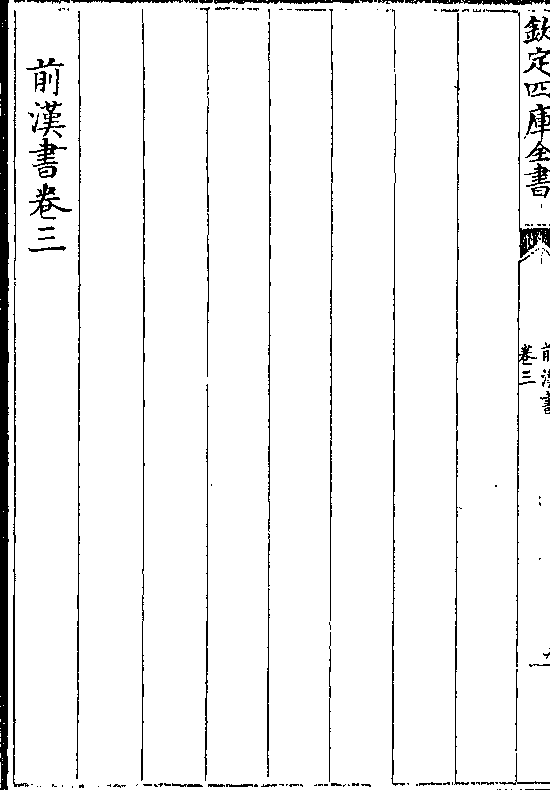 欽定四庫全書
前漢書
卷三
前漢書卷三